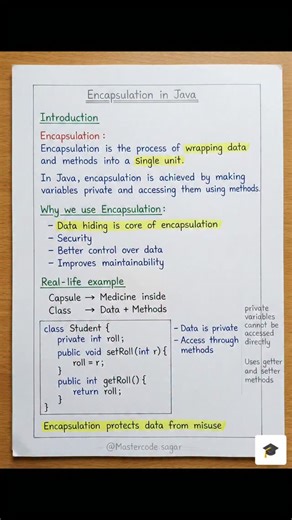 Encapsulation in Java
Introduction
Encapsulation :
Encapsulation is the process of wrapping data
and methods into a single unit.
In Java, encapsulation is achieved by making
variables private and accessing them using methods.
Why we use Encapsulation :
- Data hiding is core of encapsulation
- Security
- Better control over data
- Improves maintainability
Real-life example
Capsule → Medicine inside
Class → Data + Methods
class Student {
private int roll;
public void setRoll(int r) {
roll = r;
}
public int getRoll() {
return roll;
}
}
- Data is private
- Access through
methods
private
variables
cannot be
accessed
directly
Uses getter
and setter
methods
Encapsulation protects data from misuse
@Mastercode.sagar